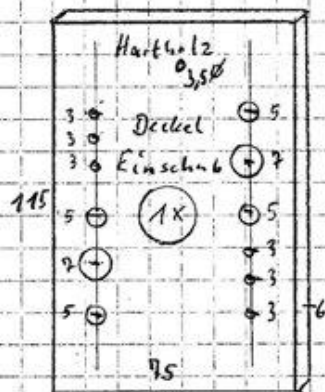 Hartholz
3,5Ø
3
5
3
Deckel
3
Einschub
7
115
5
1x
5
3
7
3
5
3
6
75